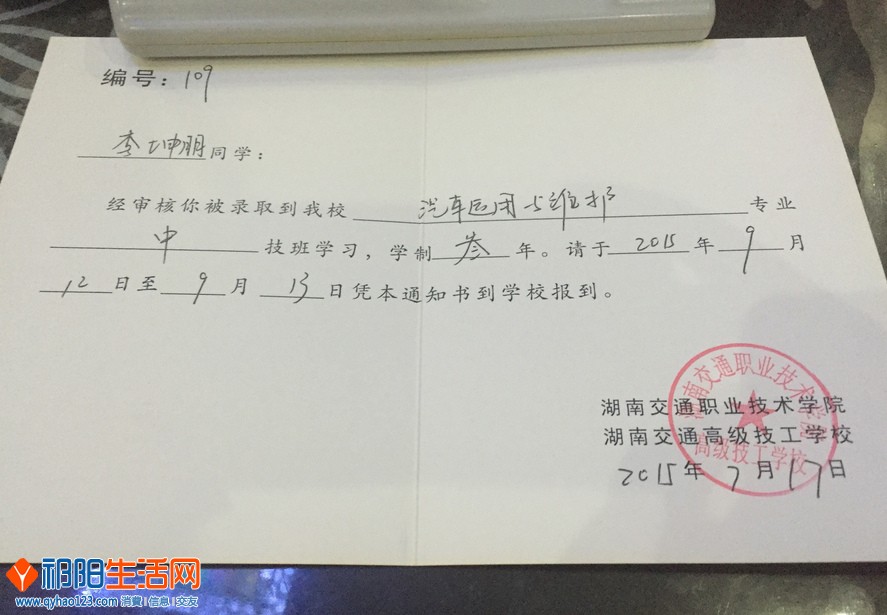 编号：109
李坤朋同学：
经审核你被录取到我校汽车运用与维护专业
中技班学习，学制叁年。请于2015年9月
12日至9月13日凭本通知书到学校报到。
湖南交通职业技术学院
湖南交通高级技工学校
2015年7月17日
湖南交通职业技术学院
高级技工学校
祁阳生活网
www.qyhao123.com 消费 信息 交友